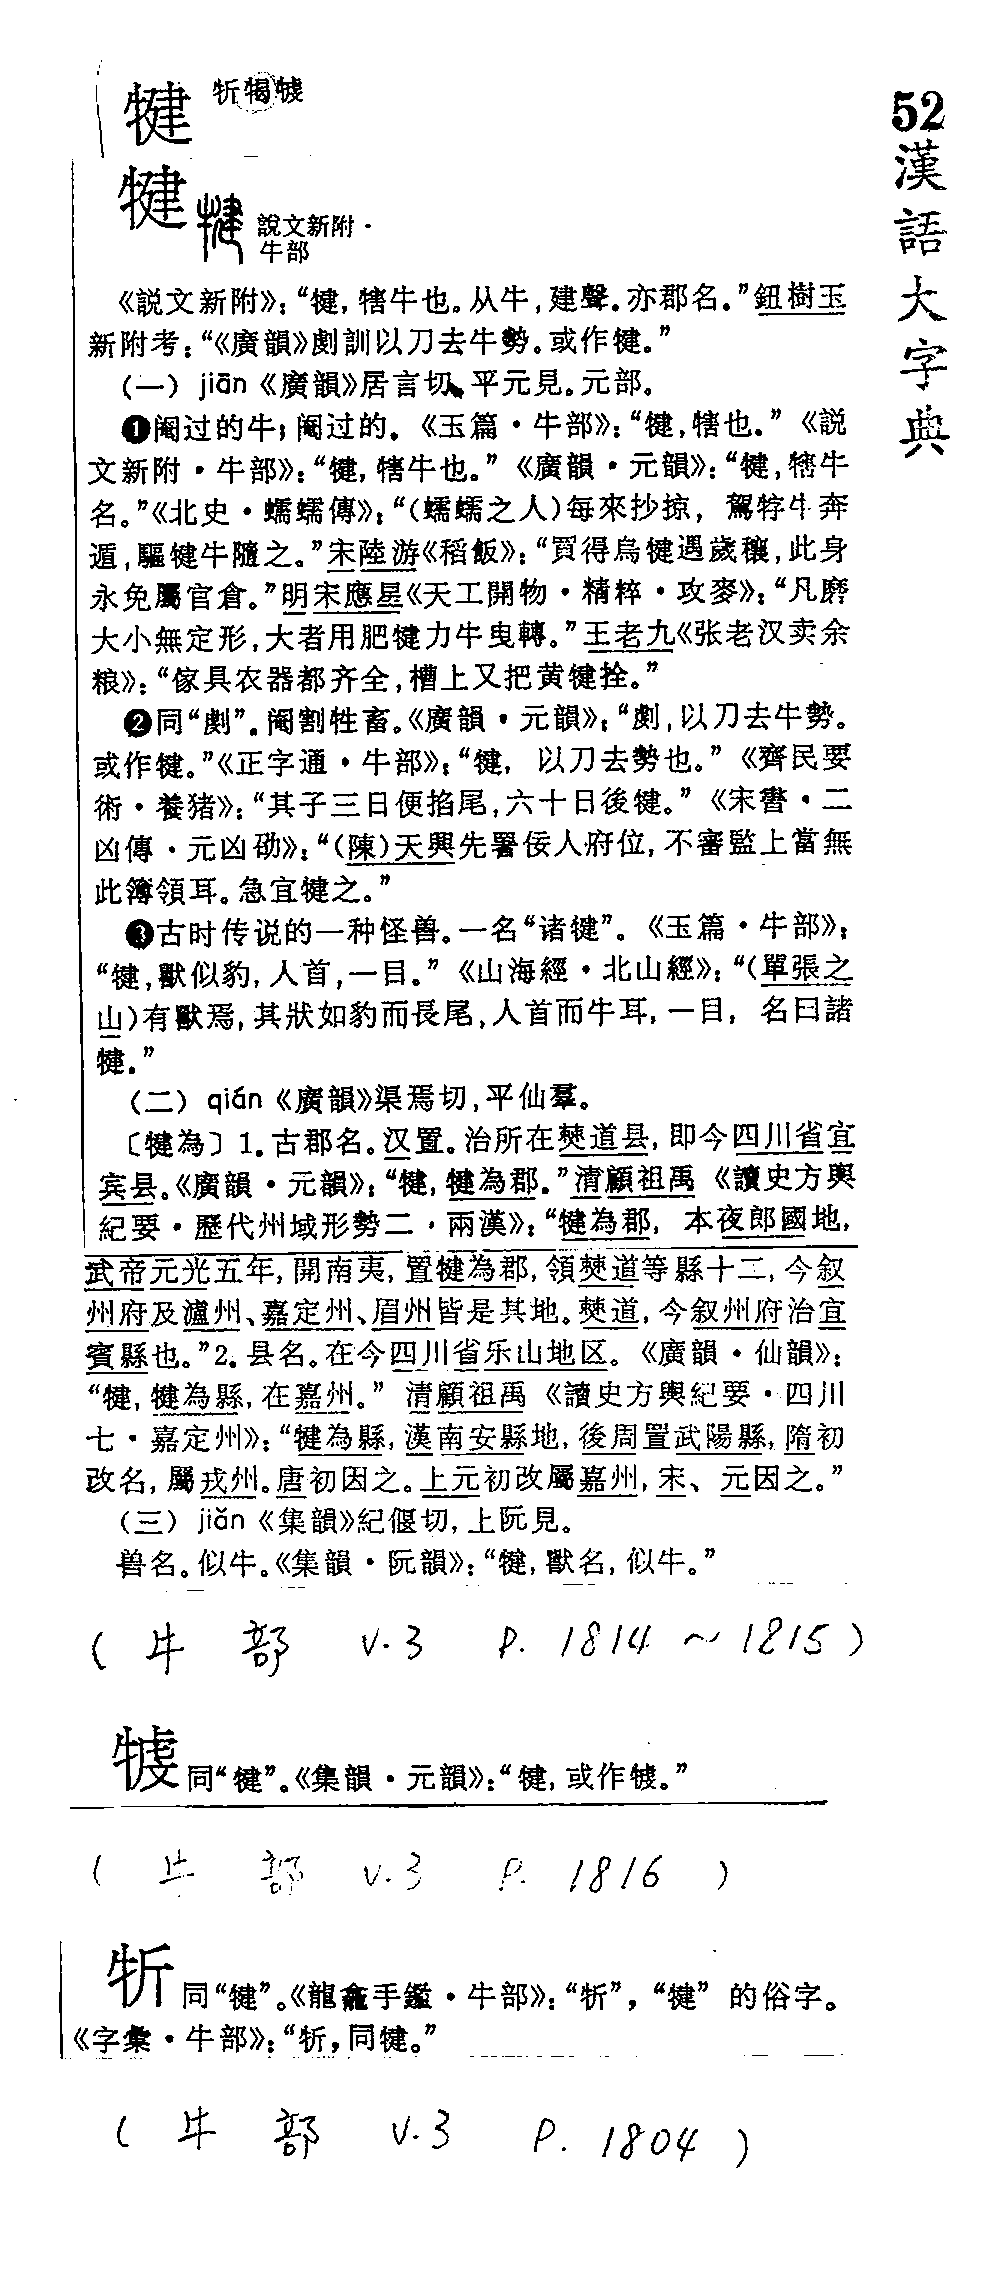 52 漢語大字典
犍 㸫犗𤚩
犍 說文新附·
牛部
《説文新附》：“犍，犗牛也。从牛，建聲。亦郡名。”鈕樹玉
新附考：“《廣韻》劇訓以刀去牛勢。或作犍。”
（一）jiān《廣韻》居言切，平元見。元部。
❶阉过的牛；阉过的。《玉篇·牛部》：“犍，犗也。”《説
文新附·牛部》：“犍，犗牛也。”《廣韻·元韻》：“犍，犗牛
名。”《北史·蠕蠕傳》：“（蠕蠕之人）每來抄掠，駕牸牛奔
遁，驅犍牛隨之。”宋陸游《稻飯》：“買得烏犍遇歲穰，此身
永免屬官倉。”明宋應星《天工開物·精粹·攻麥》：“凡磨
大小無定形，大者用肥犍力牛曳轉。”王老九《张老汉卖余
粮》：“傢具农器都齐全，槽上又把黄犍拴。”
❷同“劇”。阉割牲畜。《廣韻·元韻》：“劇，以刀去牛勢。
或作犍。”《正字通·牛部》：“犍，以刀去勢也。”《齊民要
術·養猪》：“其子三日便掐尾，六十日後犍。”《宋書·二
凶傳·元凶劭》：“（陳）天興先署佞人府位，不審監上當無
此簿領耳。急宜犍之。”
❸古时传说的一种怪兽。一名“诸犍”。《玉篇·牛部》：
“犍，獸似豹，人首，一目。”《山海經·北山經》：“（單張之
山）有獸焉，其狀如豹而長尾，人首而牛耳，一目，名曰諸
犍。”
（二）qián《廣韻》渠焉切，平仙羣。
〔犍為〕1.古郡名。汉置。治所在僰道县，即今四川省宜
宾县。《廣韻·元韻》：“犍，犍為郡。”清顧祖禹《讀史方輿
紀要·歷代州域形勢二·兩漢》：“犍為郡，本夜郎國地，
武帝元光五年，開南夷，置犍為郡，領僰道等縣十二，今叙
州府及瀘州、嘉定州、眉州皆是其地。僰道，今叙州府治宜
賓縣也。”2.县名。在今四川省乐山地区。《廣韻·仙韻》：
“犍，犍為縣，在嘉州。”清顧祖禹《讀史方輿紀要·四川
七·嘉定州》：“犍為縣，漢南安縣地，後周置武陽縣，隋初
改名，屬戎州。唐初因之。上元初改屬嘉州，宋、元因之。”
（三）jiǎn《集韻》紀偃切，上阮見。
兽名。似牛。《集韻·阮韻》：“犍，獸名，似牛。”
（牛部 V.3 P.1814～1815）
𤚩同“犍”。《集韻·元韻》：“犍，或作𤚩。”
（牛部 V.3 P.1816）
㸫同“犍”。《龍龕手鑑·牛部》：“㸫”，“犍”的俗字。
《字彙·牛部》：“㸫，同犍。”
（牛部 V.3 P.1804）